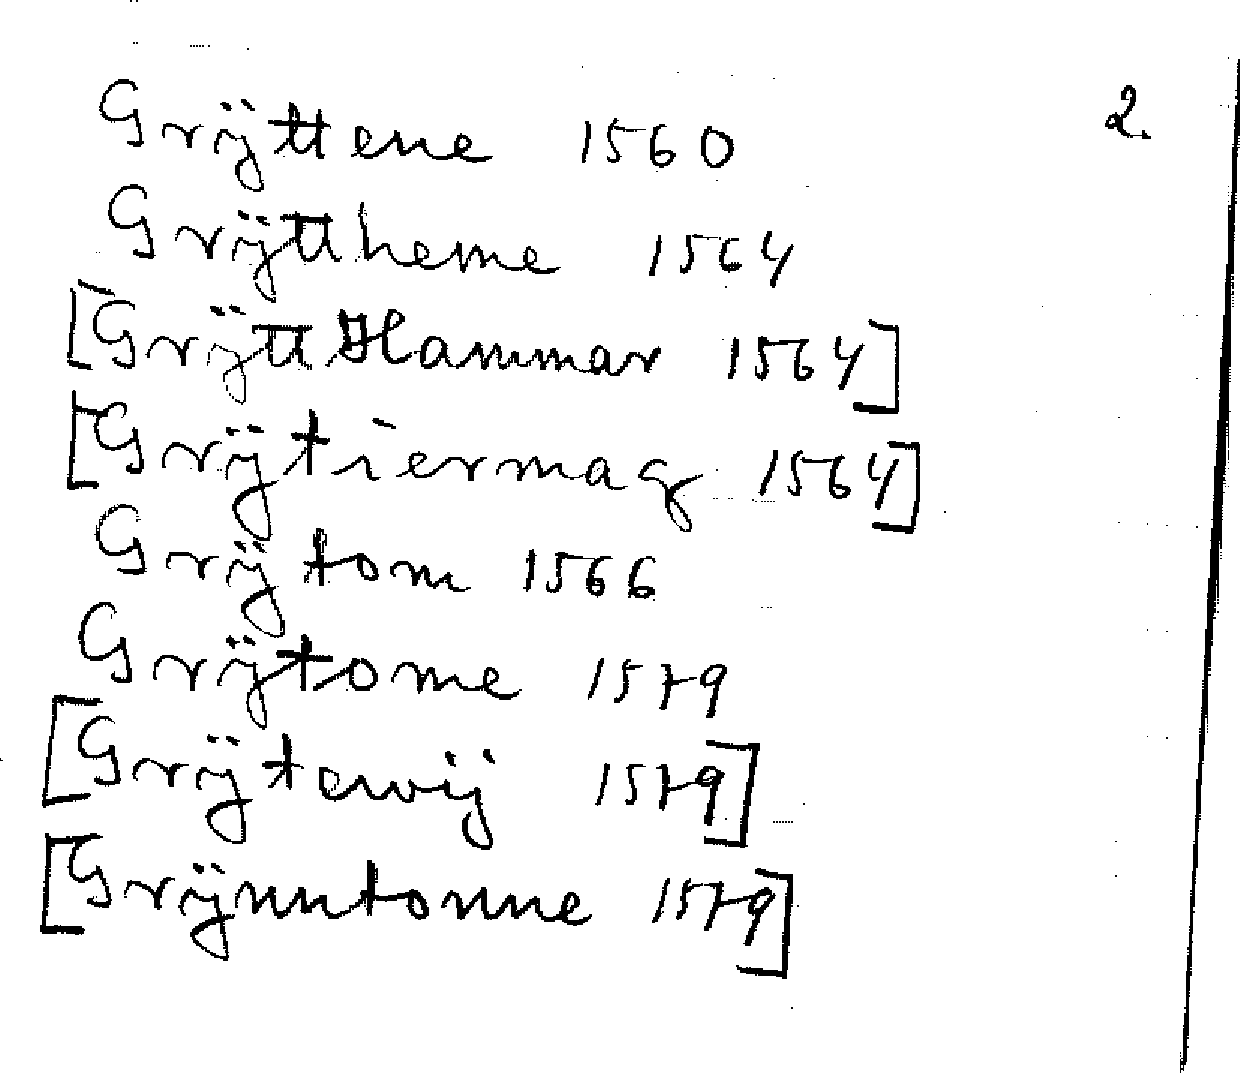 2.
Grÿttene 1560
Grÿttheme 1564
[Grÿtt Hammar 1564]
[Grÿtiermag 1564]
Grÿtom 1566
Grÿtome 1579
[Grÿtewij 1579]
[Grÿnntonne 1579]